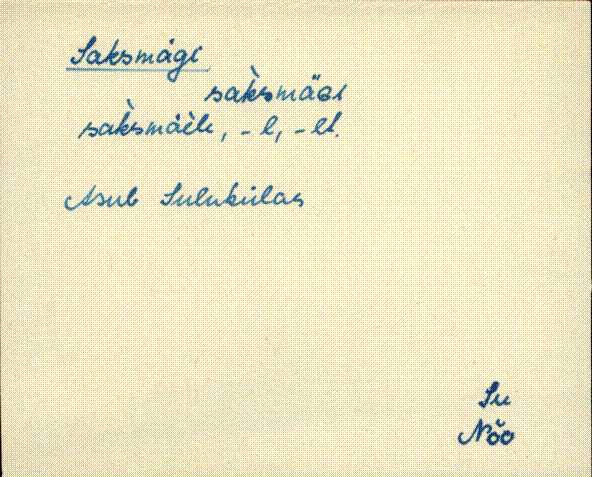 Saksmägi
sak̀smäGi
sak̀smäèle, -l, -lt.
Asub Sulukülas
Su
Nõo